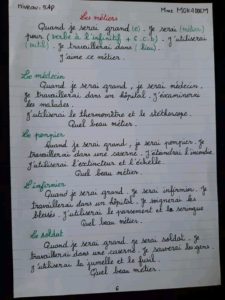 Niveau: 5AP
Mme MOKADEM
Les métiers
Quand je serai grand(e). Je serai (métier)
pour (verbe à l'infinitif + c.c.). J'utiliserai
(outil). Je travaillerai dans (lieu).
J'aime ce métier.
Le médecin
Quand je serai grand, je serai médecin.
Je travaillerai dans un hôpital. J'examinerai
les malades.
J'utiliserai le thermomètre et le stéthoscope.
Quel beau métier.
Le pompier
Quand je serai grand, je serai pompier. Je
travaillerai dans une caserne. J'éteindrai l'incendie.
J'utiliserai l'extincteur et l'échelle.
Quel beau métier.
L'infirmier
Quand je serai grand. Je serai infirmier. Je
travaillerai dans un hôpital. Je soignerai les
blessés. J'utiliserai le pansement et la seringue
Quel beau métier.
Le soldat
Quand je serai grand. Je serai soldat. Je
travaillerai dans une caserne. Je sauverai les gens
J'utiliserai la jumelle et le fusil.
Quel beau métier.
6